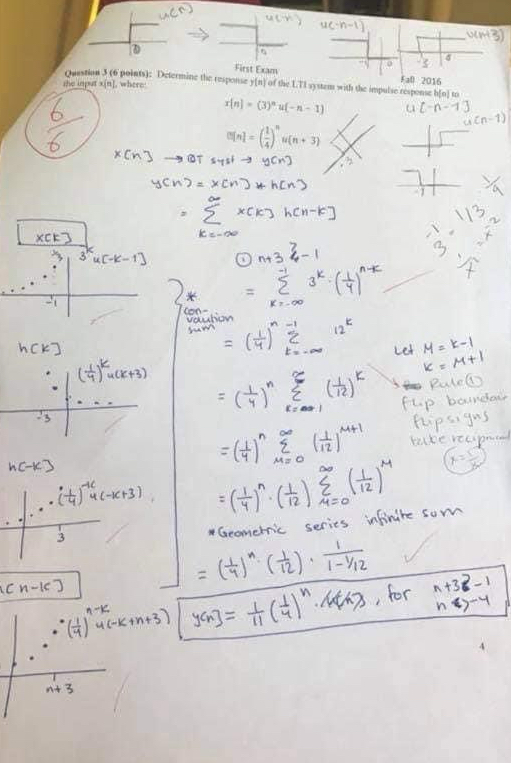 u(n)
⇒
u(n)
u(-n-1)
u(n+3)
First Exam
Fall 2016
Question 3 (6 points): Determine the response y[n] of the LTI system with the impulse response h[n] to
the input x[n], where:
x[n] = (3)ⁿ u(-n - 1)
u[-n-1]
6/6
h[n] = (1/4)ⁿ u(n + 3)
u(n-1)
x[n] → DT syst → y[n]
y[n] = x[n] * h[n]
= ∞ Σ k=-∞ x[k] h[n-k]
x[k]
3^k u[-k-1]
-1
① n+3 ≥ -1
= -1 Σ k=-∞ 3^k · (1/4)^(n-k)
* convolution sum
= (1/4)ⁿ -1 Σ k=-∞ 12^k
h[k]
(1/4)^k u(k+3)
-3
Let M = k-1
k = M+1
= (1/4)ⁿ ∞ Σ k=1 (1/12)^k
Rule ①
flip boundair
flip signs
take reciprocal
= (1/4)ⁿ ∞ Σ M=0 (1/12)^(M+1)
h[-k]
(1/4)^-k u(-k+3)
3
= (1/4)ⁿ · (1/12) ∞ Σ M=0 (1/12)^M
* Geometric series infinite sum
= (1/4)ⁿ · (1/12) · 1/(1-1/12)
h[n-k]
(1/4)^(n-k) u(-k+n+3)
n+3
y[n] = 1/11 (1/4)ⁿ , for n+3 ≥ -1
n ≥ -4
4